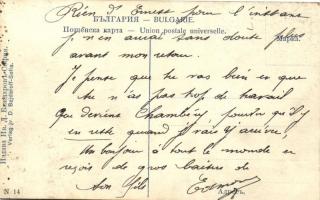 Rien d'Ernest pour l'instant
БЪЛГАРИЯ – BULGARIE.
Je n'en aurai sans doute plus
Пощенска карта — Union postale universelle.
Марка.
avant mon retour.
Je pense que tu vas bien et que
tu n'as pas trop de travail
Que devient Chambéry, pourtu qu'il y
en reste quand j'irais y arriver.
Un bonjour à tout le monde et
reçois de gros baisers de
Ton fils Edmond
Адресъ.
N 14